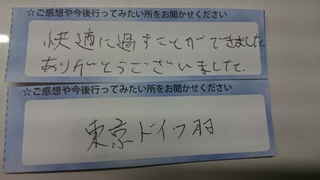 ☆ご感想や今後行ってみたい所をお聞かせください
快適に過すことができました。
ありがとうございました。
☆ご感想や今後行ってみたい所をお聞かせください
東京ドイツ村